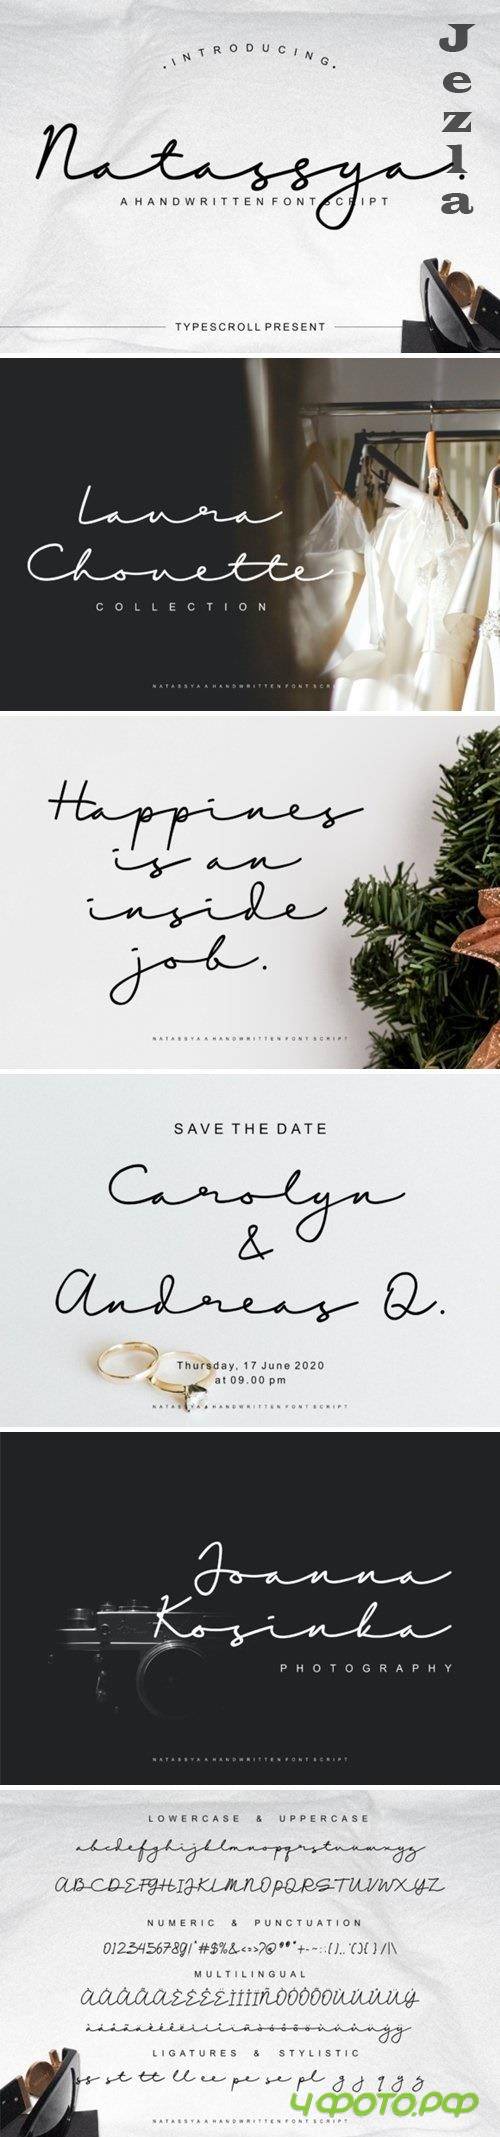 • INTRODUCING •
Jezla
Natassya
A HANDWRITTEN FONT SCRIPT
TYPESCROLL PRESENT
Laura
Chouette
COLLECTION
NATASSYA A HANDWRITTEN FONT SCRI
Happines
is an
inside
job.
NATASSYA A HANDWRITTEN FONT SCRIPT
SAVE THE DATE
Carolyn
&
Andreas Q.
Thursday, 17 June 2020
at 09.00 pm
NATASSYA A HANDWRITTEN FONT SCRIPT
Joanna
Kosinka
PHOTOGRAPHY
NATASSYA A HANDWRITTEN FONT SCRIPT
LOWERCASE & UPPERCASE
abcdefghijklmnopqrstuvwxyz
ABCDEFGHIJKLMNOPQRSTUVWXYZ
NUMERIC & PUNCTUATION
0123456789
MULTILINGUAL
LIGATURES & STYLISTIC
ss st tt ll ee pe se pl g j q y z
4ФОТО.РФ
NATASSYA A HANDWRITTEN FONT SCRIPT